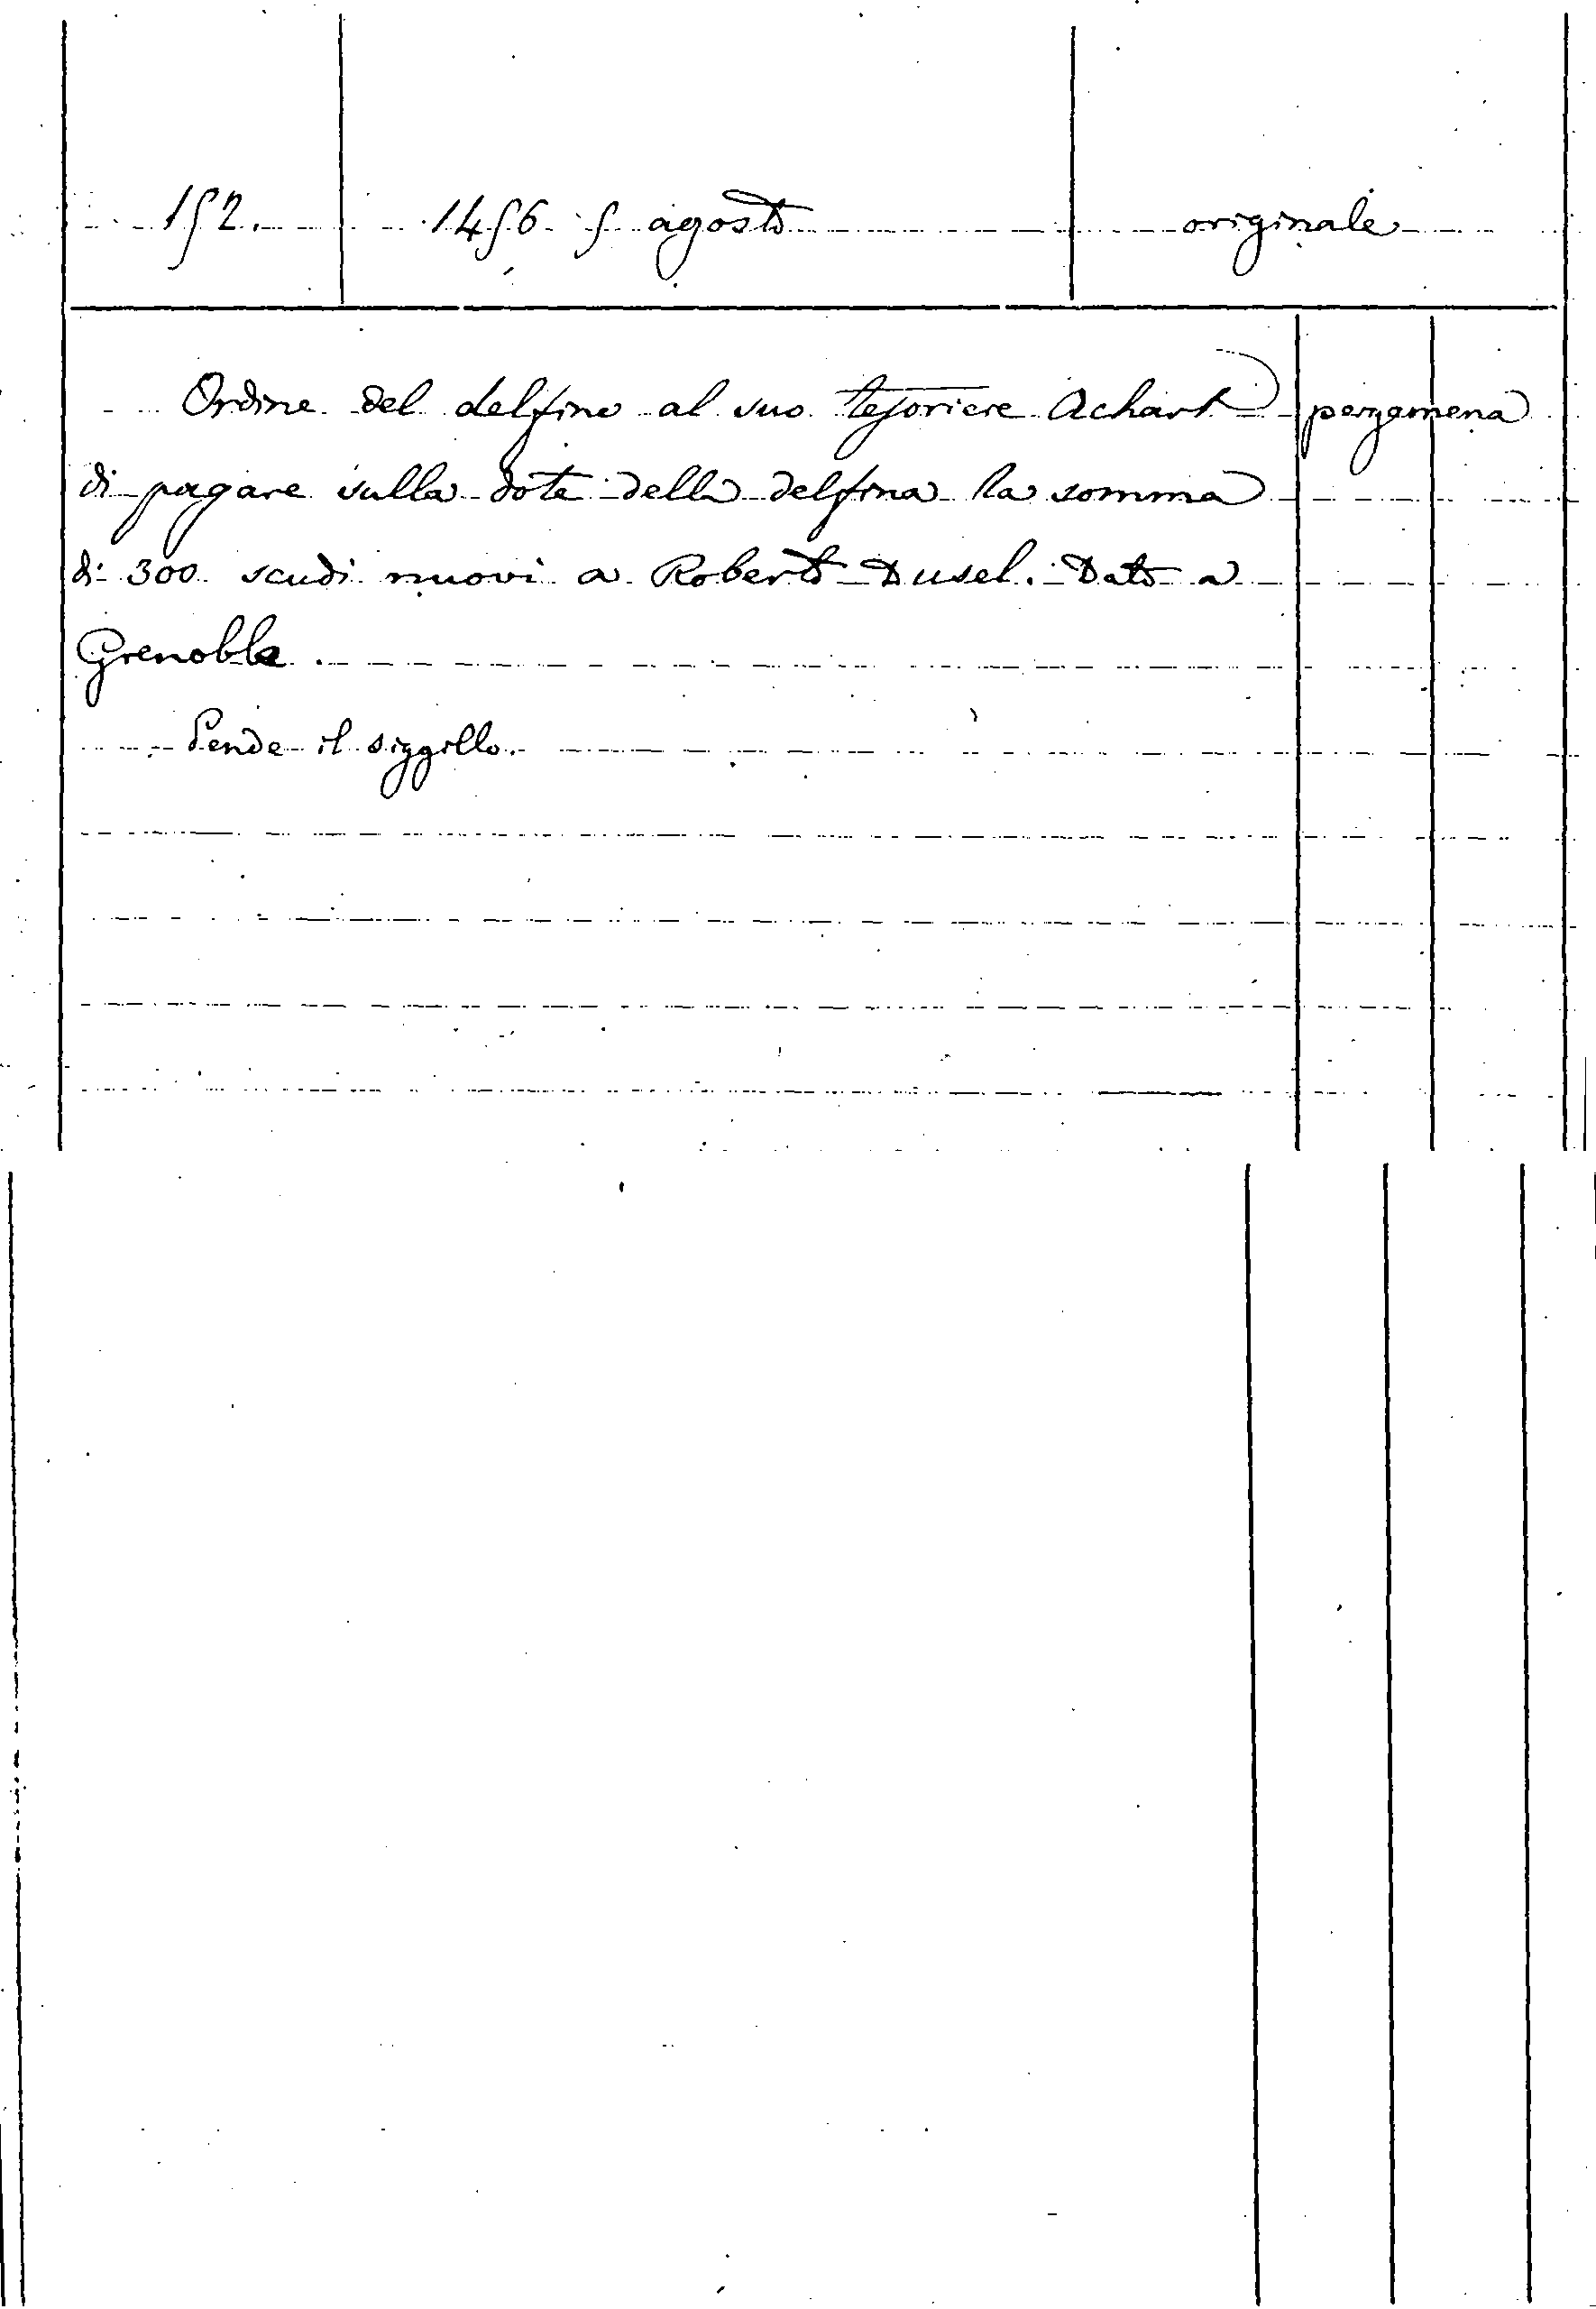 152. 1456 5 agosto originale
Ordine del delfino al suo tesoriere Achart pergamena
di pagare sulla dote della delfina la somma
di 300 scudi nuovi a Roberto Dusel. Dato a
Grenoble.
Pende il siggillo.